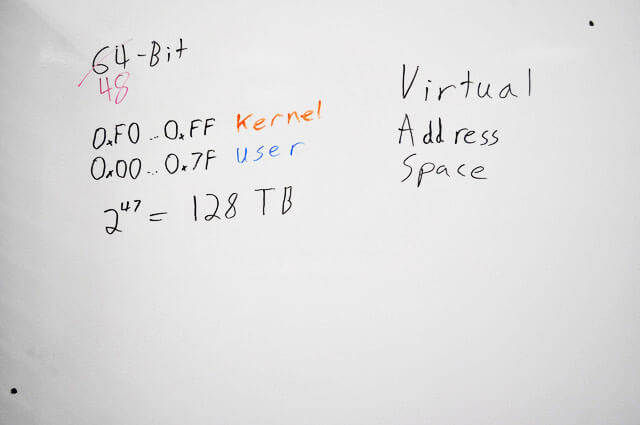 64-Bit
48
0xF0...0xFF Kernel
0x00...0x7F User
2^47 = 128 TB
Virtual
Address
Space